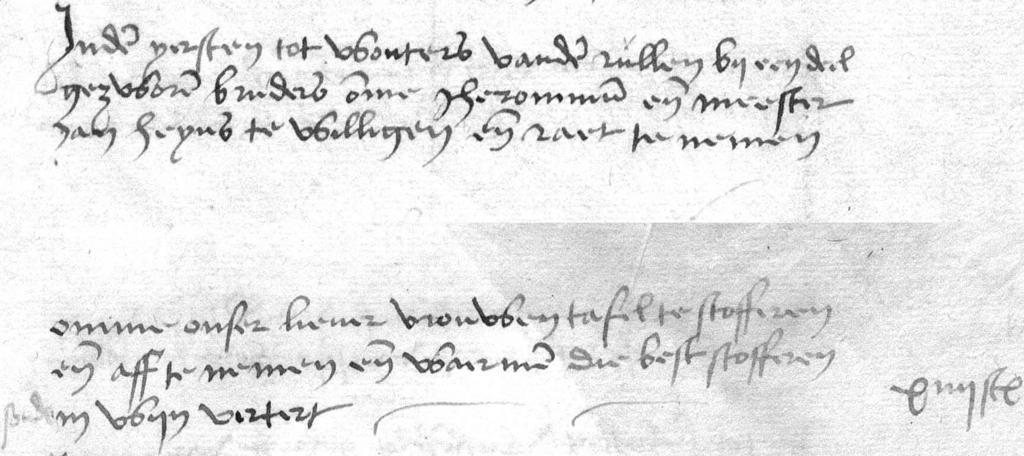 Inden yersten tot Wouters vanden rullen bij een deel
gezworē bruders ōme Jheronimū eñ meester
Jan heyns te willigen eñ raet te nemen
omme onser liever vrouwen tafel te stofferen
eñ aff te nemen eñ waermē die best stofferen
in wijn vertert